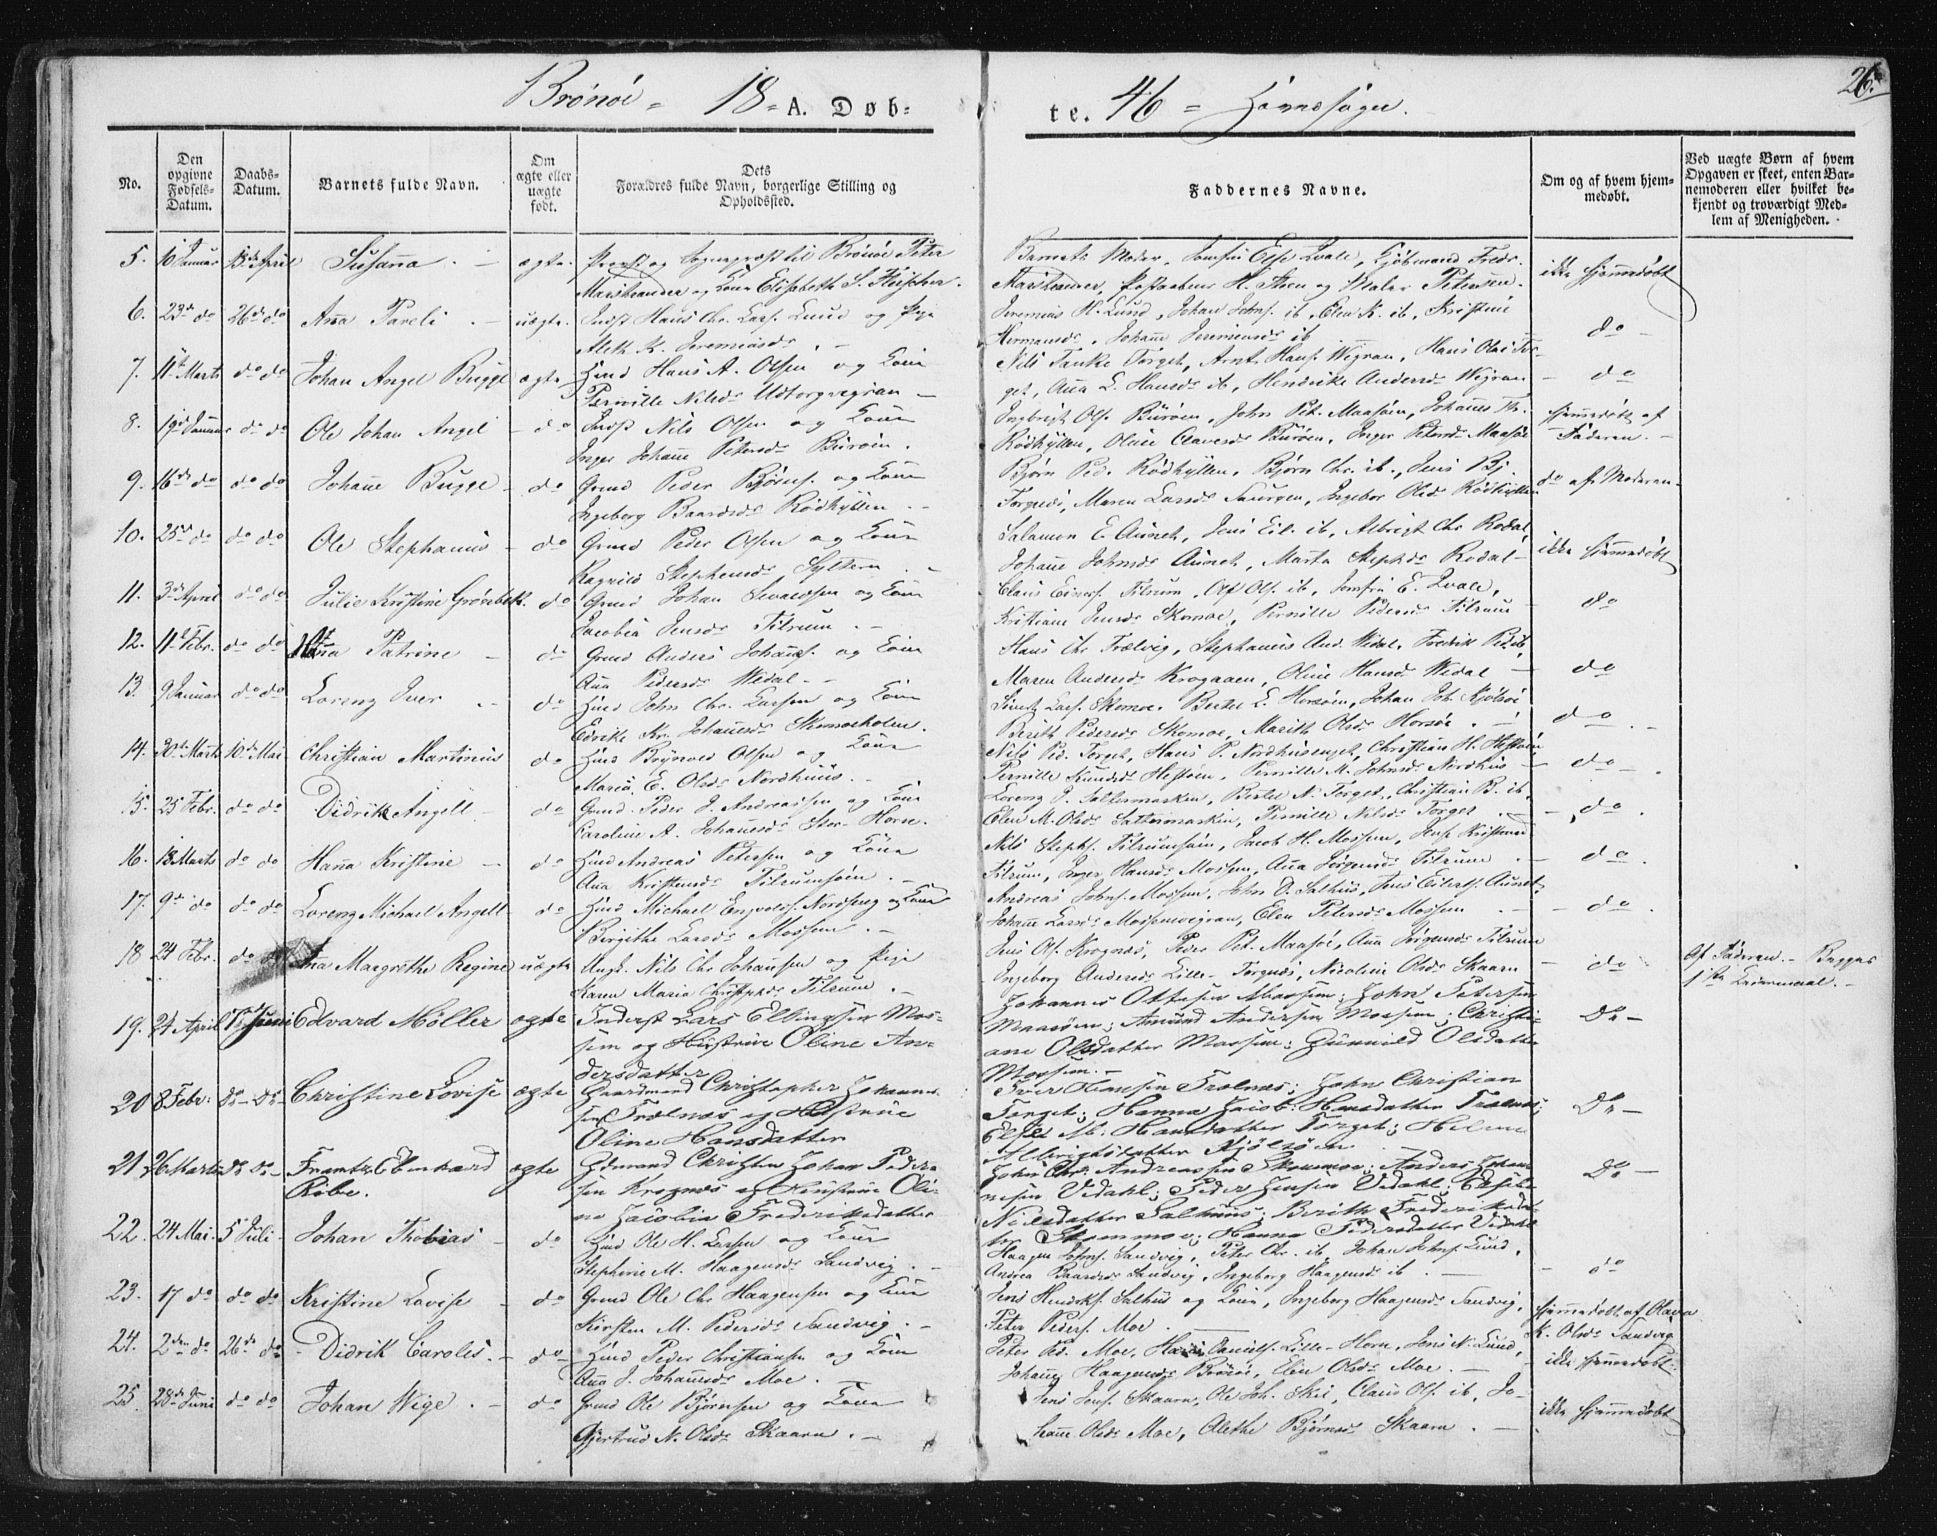 Brönöe = 18 = A. Døb-
te. 46 = Hovedsogn.
26.
No.
Den opgivne Fødsels-Datum.
Daabs-Datum.
Barnets fulde Navn.
Om ægte eller uægte født.
Dets Forældres fulde Navn, borgerlige Stilling og Opholdssted.
Faddernes Navne.
Om og af hvem hjemmedøbt.
Ved uægte Børn af hvem Opgaven er skeet, enten Barnemoderen eller hvilket bekjendt og troværdigt Medlem af Menigheden.
5. 10 Januar 13de April Susana. ægte. Provst og Sognepræst til Brönöe Peter
Elisabeth S.
Barnets Moder, Jomfru Else Qvale,
H. Steen og Maler Petersen.
ikke hjemmedøbt
6. 23de do 26de do Ana Pareli uægte. Hans Chr. Lars. Lund og Pige
Aleth K. Jeremiasdr.
Jeremias H. Lund, Johan Johns. ib, Elen K. ib, Kristine
Hermansdr, Johane Jeremiasdr ib
do
7. 11te Marts do do Johan Angel Bugge ægte Huusd Hans A. Olsen og Kone
Pernille Nilsdr Udtorgvegian
Nils Tanke Torget, Arnt Hans. Wegran, Hans Olai Tor-
get, Ana L. Hansdr ib, Hendrike Andersdr Wegran
do
8. 19de Januar do do Ole Johan Angel do Indst Nils Olsen og Kone
Inger Johane Petersdr Buröen.
Ingbrigt Ols. Buröen, John Pet. Maasöen, Johanes Th.
Rödhyllen, Oline Olavesdr Buröen, Inger Petersdr Maasöe
hjemmedøbt af
Faderen.
9. 16de do do do Johane Bugge do Grmd Peder Björns. og Kone
Ingeborg Baardsdr Rödhyllen
Björn Ped. Rödhyllen, Björn Chr. ib., Jens Bj.
Torgnæs, Maren Larsdr Saurgen, Ingebor Olsdr Rödhyllen
do af Moderen.
10. 25de do do do Ole Stephanus do Grmd Peder Olsen og Kone
Ragnild Stephensdr Syltern
Salamon E. Aunet, Jens Eil. ib, Albrigt Chr Rodal,
Johane Johnsdr Aunet, Marta Stephdr Rodal
ikke hjemmedøbt
11. 3de April do do Julie Kristine Grönbek. do Grmd Johan Sivardsen og Kone
Jacobia Jensdr Tilrum
Claus Einers. Tilrum, Ols. ib, Jomfru E. Qvale,
Kristiane Jensdr Skomoe, Pernille Pedersdr Tilrum
do
12. 11te Febr. do do Ana Patrine do Grmd Anders Johans. og Kone
Ana Pedersdr Wedal
Hans Chr Trælvig, Stephanus And. Wedal, Fredrik Ped. ib,
Maren Andersdr Krogaaen, Oline Hansdr Wedal
do
13. 9 Januar do do Lorenz Iver do Huusd John Chr. Larsen og Kone
Edrikke Kr. Johanesdr Skomoeholm.
Lars. Skomoe, Bertel L. Horsöen, Johan Joh. Kjölsöe
Berith Pedersdr Skomoe, Marith Olsdr Horsöe.
do
14. 30te Marts 10de Mai Christian Martinus do Huusd Brynild Olsen og Kone
Maria E. Olsdr Nordhuus.
Nils Ped. Torget, Hans P. Nordhusenget, Christian H. Hestöen
Pernille Knudsdr Hestöen, Pernille M. Johnsdr Nordhus
do
15. 25 Febr. do do Didrik Angell do Grmd. Peder J. Andreassen og Kone
Karoline A. Johanesdr Stor-Horn.
Lorenz J. Saltermarken, Bertel N. Torget, Christian B. ib.
Elen M. Olsdr Saltermarken, Pernille Nilsdr Torget
do.
16. 13 Marts do do Hana Kristine do Huusd Andreas Petersen og Kone
Ana Kristensdr Tilrumsöen.
Nils Steph. Tilrumsöen, Jacob H. Mossem, Jens Kristens
Tilrum, Inger Hansdr Mossem, Ana Jörgensdr Tilrum
do.
17. 9de do do do Lorenz Michael Angell do Huusd Michael Engvolds. Nordseng og Kone
Birgithe Larsdr Mossem.
Andreas Johns. Mossem, John D. Salhus, Jens Eilerts. Aunet,
Johane Larsdr Mossemvegran, Elen Petersdr Mossem
do.
18 24 Febr. do Ana Margrethe Regine uægte Ungk. Nils Chr Johansen og Pige
Karen Maria Christophdr Tilrum
Jens Ols. Krognæs, Peder Pet. Maasöe, Ana Jörgensdr Tilrum
Ingeborg Andersdr Lille-Torgnæs, Nicoline Olsdr Skaarn
do
Af Faderen.
19. 24 April 1ste Juni Edvard Möller ægte Inderst Lars Ellingsen Mos-
sem og Hustrue Oline An-
dersdatter
Johannes Ottesen Mossem; John Petersen
Maasöen; Amund Andersen Mossem; Christi-
ane Olsdatter Mossem; Gunnild Olsdatter
Mossem.
Do
20 8 Febr: Do Do Christine Lovise ægte Gaardmand Christopher Johanne-
sen Trælnæs og Hustrue
Oline Hansdatter
Iver Hansen Trælnæs; John Christian
Torget; Hanna Jacob: Hansdatter Trælnæs;
Else M. Hansdatter Torget; Helene
Albrigtsdatter Kjölsöen
Do
21 26 Marts Do Do Frantz Eberhard
Röbe.
ægte Gdmand Christen Johan Peder-
sen Krognæs og Hustrue Oli-
ne Jacobia Frederiksdatter
John Chr. Andreassen Skommoe; Anders Johan-
nesen Vedahl; Peder Jensen Vedahl;
Nielsdatter Salhuus; Berith Frederiksdat-
ter Skommoe; Hanna Pedersdatter Vedahl
Do
22. 24 Mai. 5 Juli Johan Thobias do Huusd Ole H. Larsen og Kone
Stephine M. Haagensdr Sandvig.
Haagen Johns. Sandvig, Peter Chr. ib, Johan Johns. Lund,
Andrea Baardsdr Sandvig, Ingeborg Haagensdr ib.
do
23. 17 do do do Kristine Lovise do Grmd Ole Chr Haagensen og Kone
Kirsten M. Pedersdr Sandvig.
Jens Hendriks. Salhus og Kone, Ingeborg Haagensdr Sandvig,
Peter Peders. Moe.
hjemmedøbt af Olava
K. Olsdr Sandvig
24. 2den do 26de do Didrik Caroles. do Huusd Peder Christiansen og Kone
Ana J. Johansdr Moe.
Peter Ped. Moe, Hans Daniels. Lille-Horn, Jens N. Lund,
Johane Haagensdr Brönöe, Elen Olsdr Moe.
ikke hjemmedøbt.
25. 28de Juni do do Johan Wige. do Grmd Ole Björnsen og Kone
Gjertrud N. Olsdr Skaarn.
Jens Jens. Skaarn, Ole Joh. Skei, Claus Ols. ib, Jo-
hane Olsdr Moe, Alethe Björnsdr Skaarn.
ikke hjemmedøbt